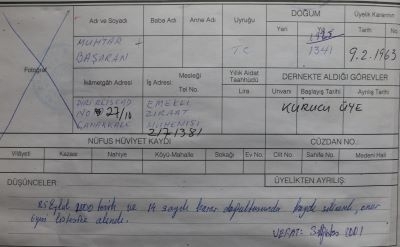 Adı ve Soyadı Baba Adı Ana Adı Uyruğu DOĞUM Üyelik Kararının
Yeri Tarihi Tarihi No
MUHTAR
BAŞARAN
T.C
1925
1341
9.2.1963
Fotoğraf
İkâmetgâh Adresi İş Adresi Mesleği Yıllık Aidat Taahhüdü DERNEKTE ALDIĞI GÖREVLER
Tel No. Lira Unvanı Başlayış Tarihi Ayrılış Tarihi
NO 27/10
ÇANAKKALE
EMEKLİ
ZİRAAT
MÜHENDİSİ
2171381
KURUCU ÜYE
NÜFUS HÜVİYET KAYDI CÜZDAN NO.
Vilâyeti Kazası Nahiye Köyü-Mahalle Sokağı Ev No. Cilt No. Sahife No. Medeni Hali
DÜŞÜNCELER ÜYELİKTEN AYRILIŞ:
25 Eylül 2000 tarih ve 14 sayılı karar doğrultusunda kaydı silinerek, onur
üyesi listesine alındı.
VEFAT: 2001